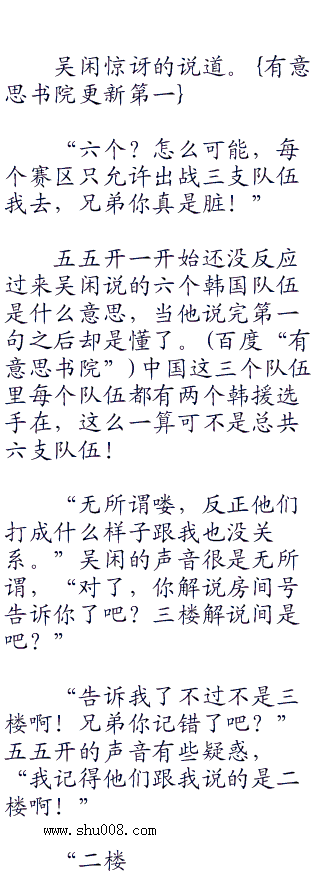 吴闲惊讶的说道。{有意
思书院更新第一}
“六个？怎么可能，每
个赛区只允许出战三支队伍
我去，兄弟你真是脏！”
五五开一开始还没反应
过来吴闲说的六个韩国队伍
是什么意思，当他说完第一
句之后却是懂了。(百度“有
意思书院”)中国这三个队伍
里每个队伍都有两个韩援选
手在，这么一算可不是总共
六支队伍！
“无所谓喽，反正他们
打成什么样子跟我也没关
系。”吴闲的声音很是无所
谓，“对了，你解说房间号
告诉你了吧？三楼解说间是
吧？”
“告诉我了不过不是三
楼啊！兄弟你记错了吧？”
五五开的声音有些疑惑，
“我记得他们跟我说的是二
楼啊！”
www.shu008.com
“二楼